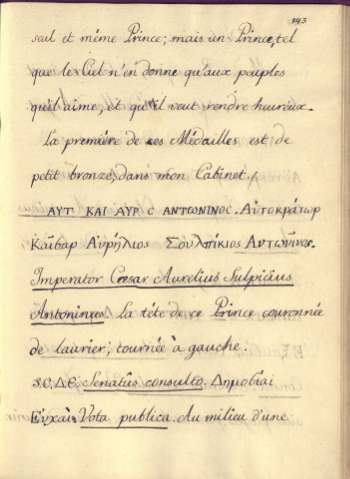 343
seul et même Prince; mais un Prince, tel
que le Ciel n'en donne qu'aux peuples
qu'il aime, et qu'il veut rendre heureux.
La première de ces Médailles est de
petit bronze, dans mon Cabinet.
ΑΥΤ ΚΑΙ ΑΥΡ C ΑΝΤΩΝΙΝΟC. Αὐτοκράτωρ
Καῖσαρ Αὐρήλιος Σουλπίκιος Αντωνῖνος.
Imperator Cæsar Aurelius Sulpicius
Antoninus. la tête de ce Prince couronnée
de laurier, tournée à gauche.
S.C. ΔΕ. Senatûs consulto. Δημοσίαι
Εὐχαί. Vota publica. Au milieu d'une